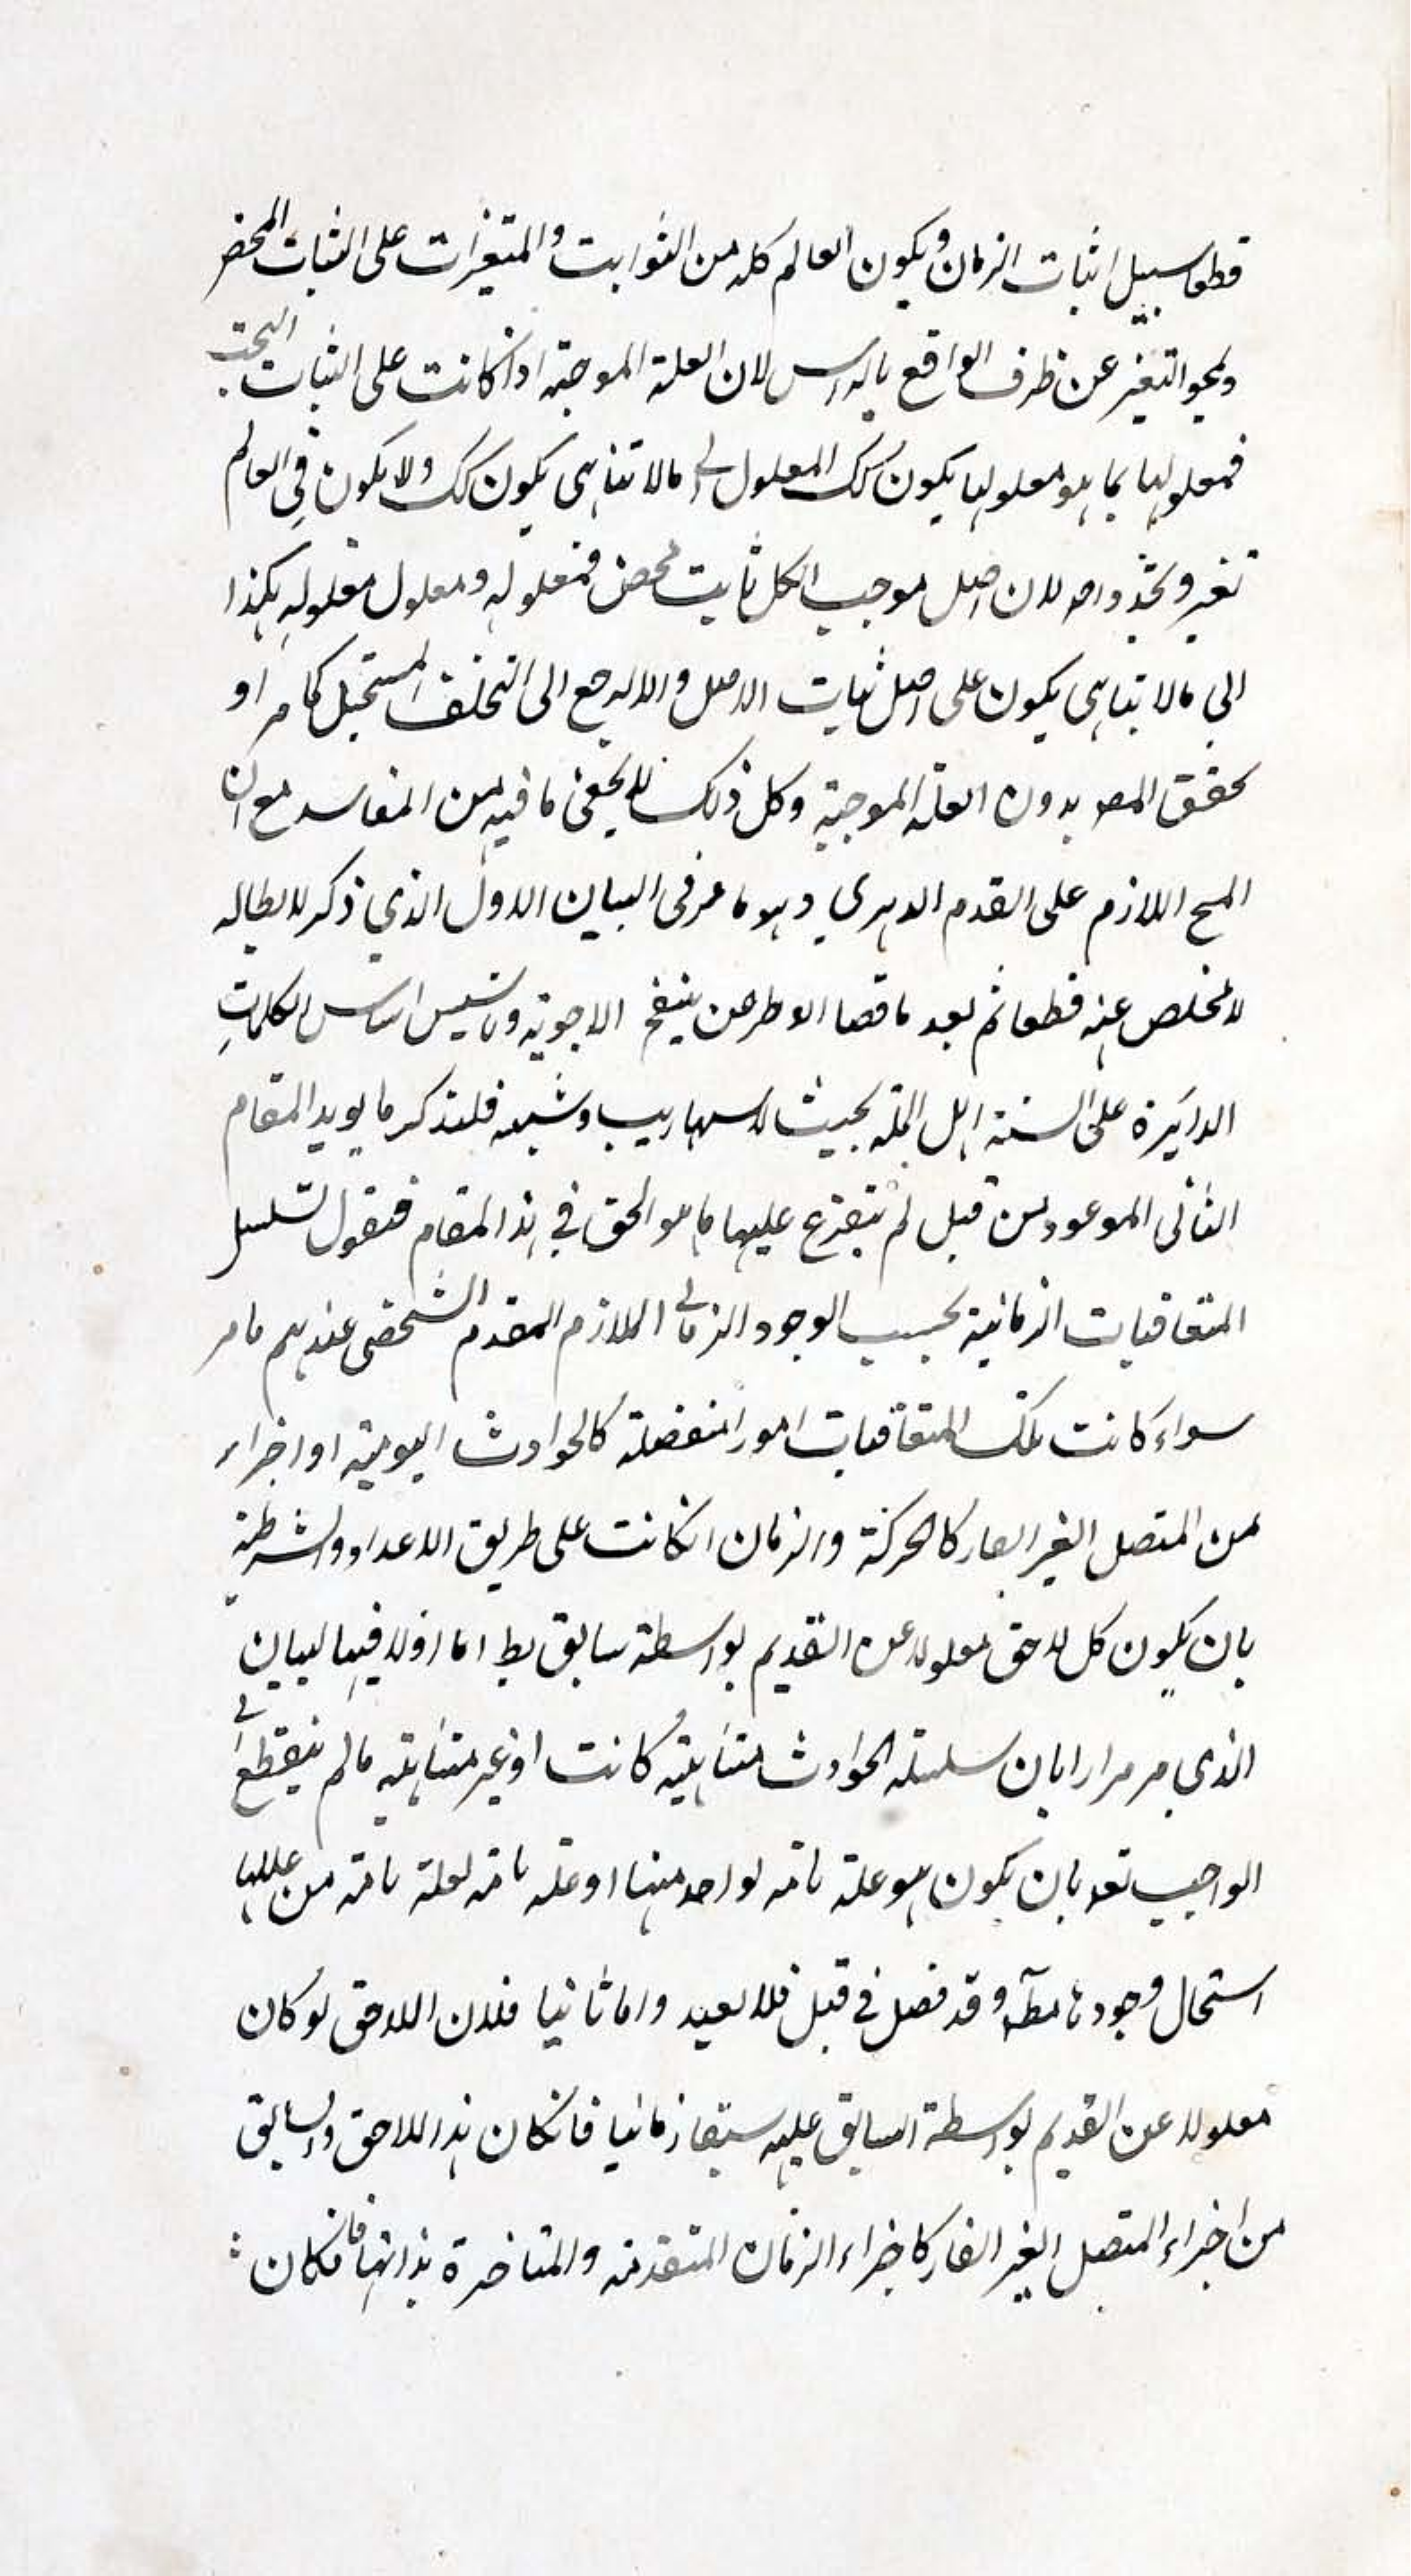 قطعا سبيل اثبات الزمان ويكون العالم كله من الثوابت والمتغيرات على الثبات المحض
ويمحو التغير عن ظرف الواقع بالراس لان العلة الموجبة اذا كانت على الثبات البحت
فمعلولها بما هو معلولها يكون كك المعلول الى مالا تتناهى يكون كك ولا يكون في العالم
تغير وتجدد واحد لان اصل موجب الكل ثابت محض فمعلوله ومعلول معلوله هكذا
الى مالا يتناهى يكون على اصل ثبات الاصل والا لرجع الى التخلف المستحيل كما مر او
تحقق المعـ بدون العلة الموجبة وكل ذلك لا يخفى ما فيه من المفاسد مع ان
المح اللازم على القدم الدهري وهو ما مر فى البيان الاول الذي ذكر لابطاله
لا مخلص عنه قطعا ثم بعد ما قضا الوطر من ينفح الاجوبة وتاسيس اساس الكلمات
الدائرة على السنة اهل الملة بحيث لا ريب وشبهه فلنذكر ما يويد المقام
الثانى الموعود من قبل ثم يتفرع عليها ما هو الحق في هذا المقام فنقول تسلسل
المتعاقبات الزمانية بحسب الوجود الزمانى اللازم للقدم الشخصى عندهم ما مر
سواء كانت تلك المتعاقبات امورا منفصلة كالحوادث اليومية او اجزاء
من المتصل الغير القار كالحركة والزمان انكانت على طريق الاعداد والشرطية
بان يكون كل لاحق معلولا عن القديم بواسطة سابق بط اما اولا فبالبيان
الذي مر مرارا بان سلسلة الحوادث متناهية كانت او غير متناهية مالم ينقطع الى
الواجب تعـ بان يكون هو علة تامة لواحد منها او علة تامة لعلة تامة من عللها
استحال وجودها مطلقا وقد فصل في قبل فلا نعيد واما ثانيا فلان اللاحق لو كان
معلولا عن القديم بواسطة السابق عليه سبقا زمانيا فانكان هذا اللاحق والسابق
من اجزاء المتصل الغير القار كاجزاء الزمان المتقدمة والمتاخرة بذاتها فانكان